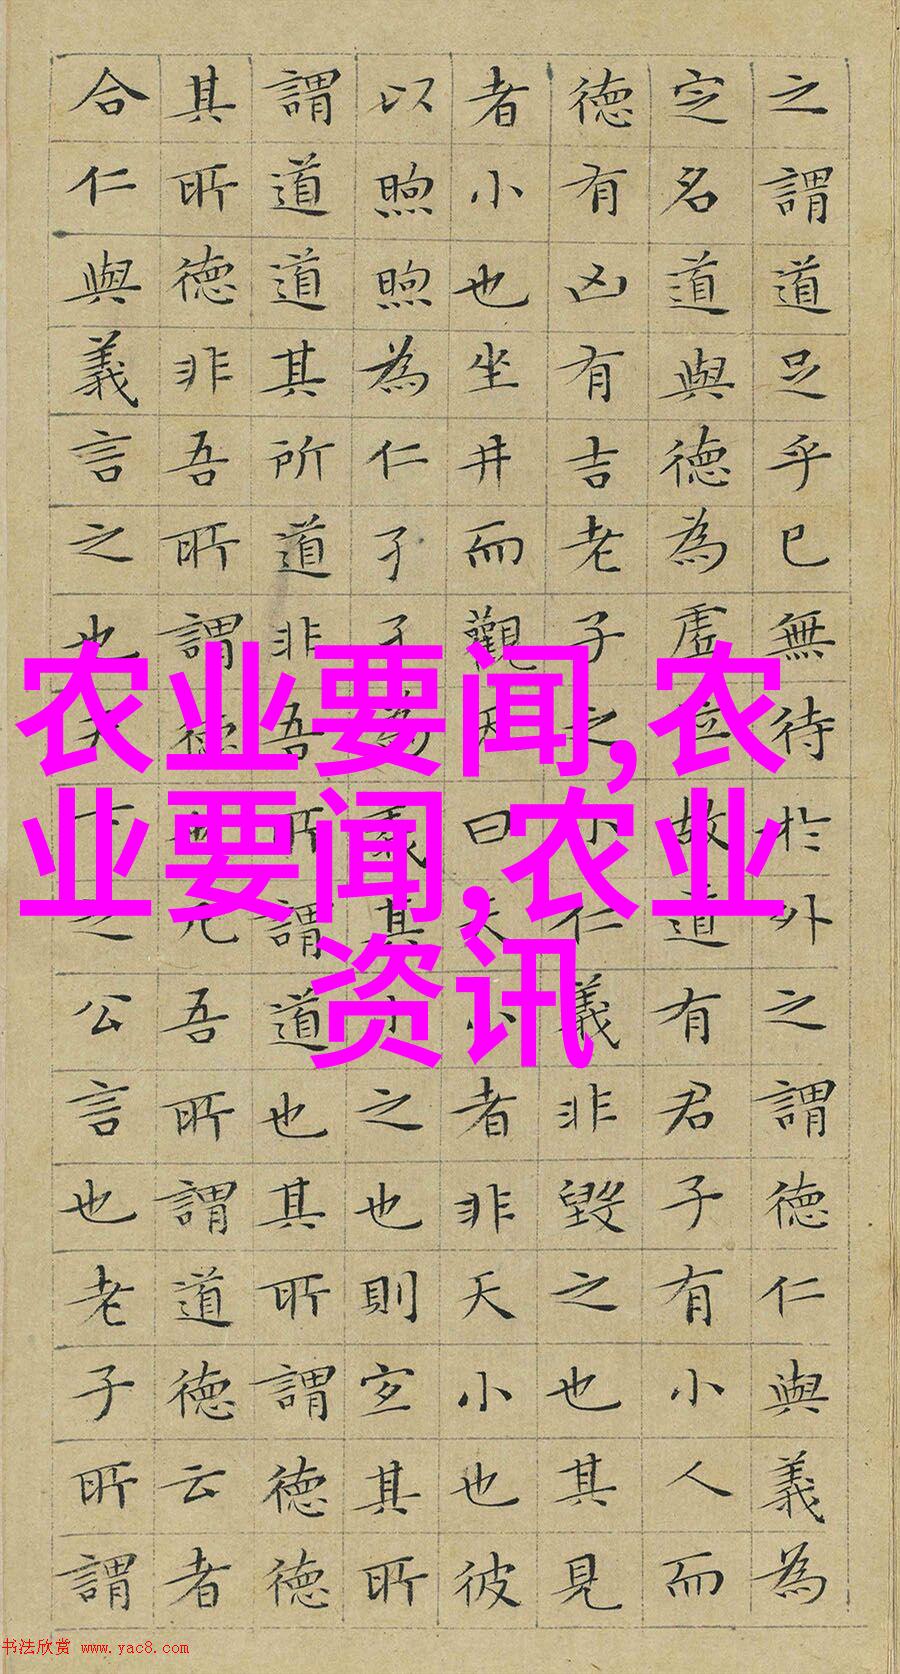 之謂道足乎已無待於外之謂德仁與義為
定名道與德為虛位故道有君子有小人而
德有凶有吉老子之小仁義非毀之也其見
者小也坐井而觀天曰天小者非天小也彼
以煦煦為仁孑孑為義其小之也則宜其所
謂道道其所道非吾所謂道也其所謂德德
其所德非吾所謂德也凡吾所謂道德云者
合仁與義言之也天下之公言也老子所謂
农业要闻,农
业要闻,农业
资讯
书法欣赏 www.yac8.com